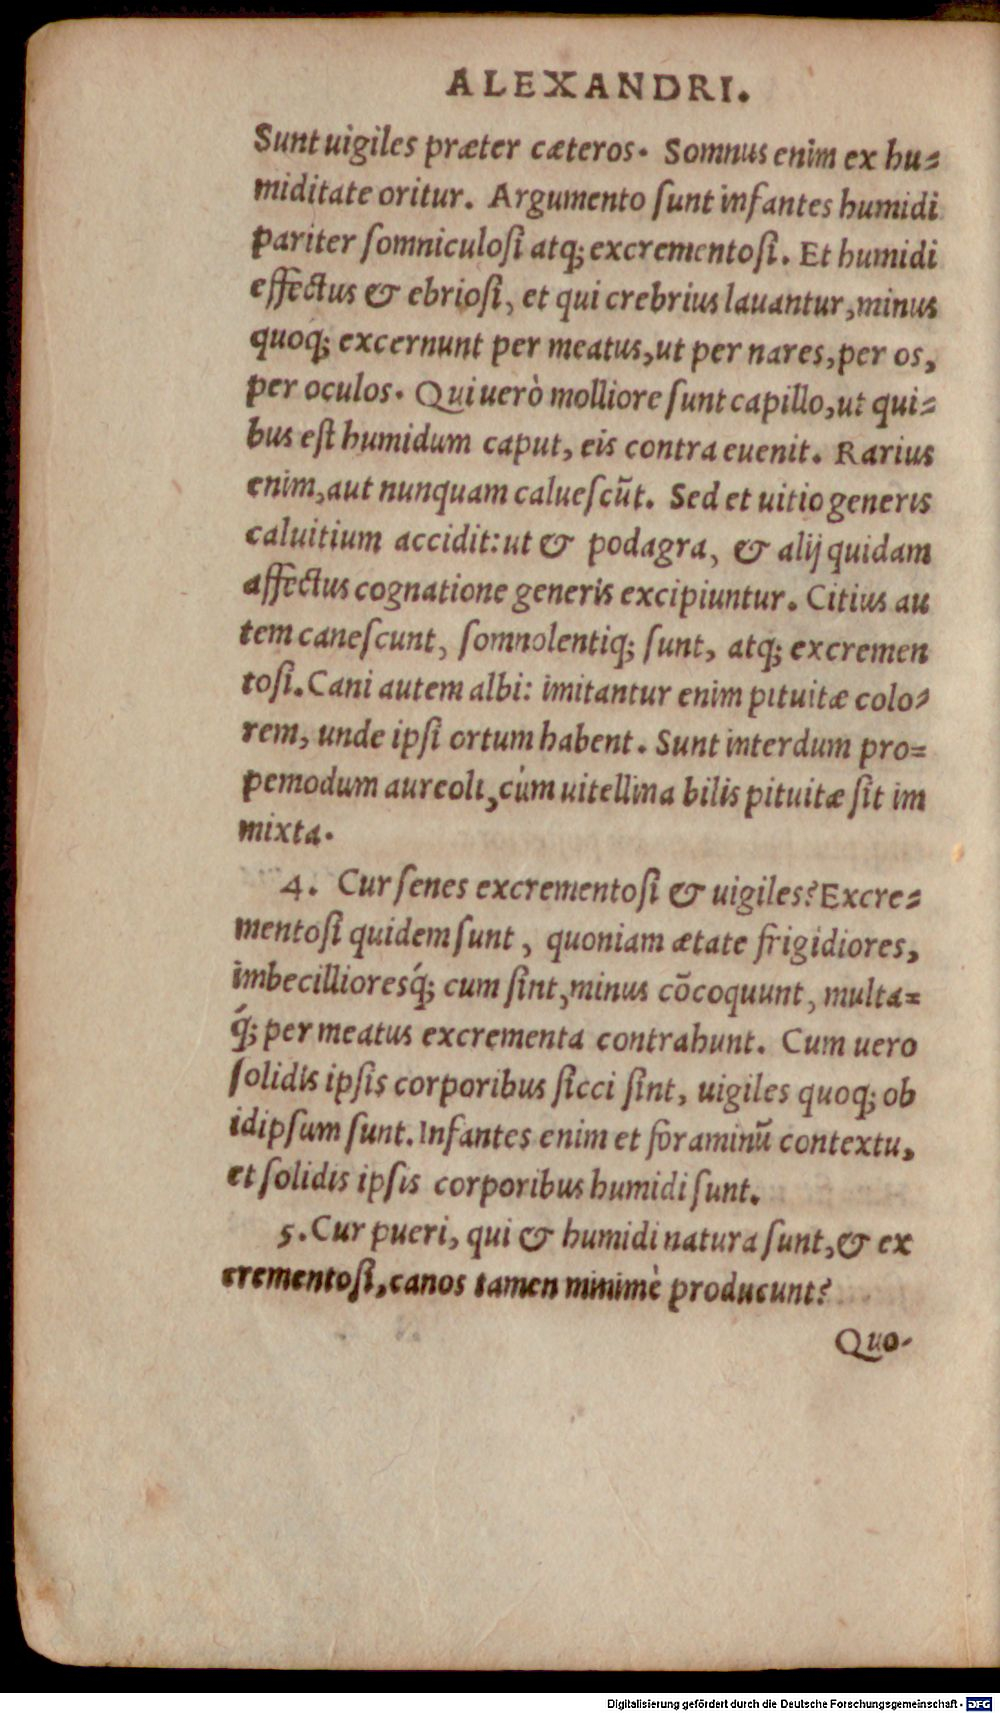 ALEXANDRI.
Sunt uigiles præter cæteros. Somnus enim ex hu⸗
miditate oritur. Argumento ſunt infantes humidi
pariter ſomniculoſi atq; excrementoſi. Et humidi
effectus & ebrioſi, et qui crebrius lauantur, minus
quoq; excernunt per meatus, ut per nares, per os,
per oculos. Qui uerò molliore ſunt capillo, ut qui⸗
bus eſt humidum caput, eis contra euenit. Rarius
enim, aut nunquam calueſcũt. Sed et uitio generis
caluitium accidit: ut & podagra, & alij quidam
affectus cognatione generis excipiuntur. Citius au
tem caneſcunt, ſomnolentiq; ſunt, atq; excremen
toſi. Cani autem albi: imitantur enim pituitæ colo⸗
rem, unde ipſi ortum habent. Sunt interdum pro⸗
pemodum aureoli, cùm uitellina bilis pituitæ ſit im
mixta.
4. Cur ſenes excrementoſi & uigiles? Excre⸗
mentoſi quidem ſunt, quoniam ætate frigidiores,
imbecillioresq́; cum ſint, minus cõcoquunt, multa⸗
q́; per meatus excrementa contrahunt. Cum uero
ſolidis ipſis corporibus ſicci ſint, uigiles quoq; ob
idipſum ſunt. Infantes enim et foraminũ contextu,
et ſolidis ipſis corporibus humidi ſunt.
5. Cur pueri, qui & humidi natura ſunt, & ex
crementoſi, canos tamen minimè producunt?
Quo-
Digitalisierung gefördert durch die Deutsche Forschungsgemeinschaft - DFG